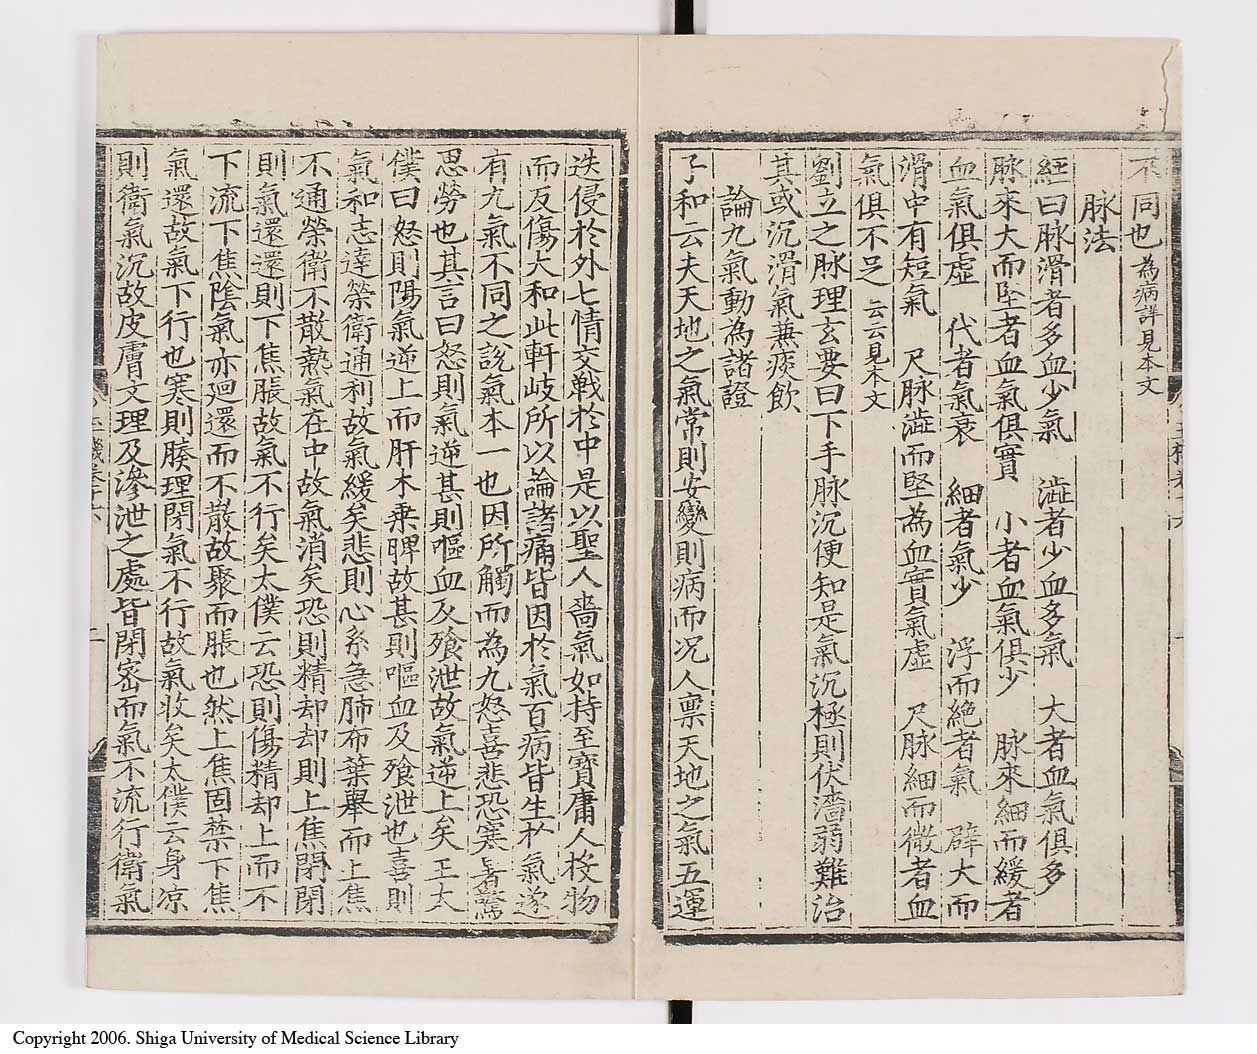 不同也為病詳見本文
脉法
經曰脉滑者多血少氣 澁者少血多氣 大者血氣俱多
脉來大而堅者血氣俱實 小者血氣俱少 脉來細而緩者
血氣俱虛 代者氣衰 細者氣少 浮而絶者氣 辟大而
滑中有短氣 尺脉澁而堅為血實氣虛 尺脉細而微者血
氣俱不足云云見本文
劉立之脉理玄要曰下手脉沉便知是氣沉極則伏濇弱難治
其或沉滑氣兼痰飲
論九氣動為諸證
子和云夫天地之氣常則安變則病而况人禀天地之氣五運
迭侵於外七情交戰於中是以聖人嗇氣如持至寳庸人役物
而反傷大和此軒岐所以論諸痛皆因於氣百病皆生於氣遂
有九氣不同之說氣本一也因所觸而為九怒喜悲恐寒暑驚
思勞也其言曰怒則氣逆甚則嘔血及飱泄故氣逆上矣王太
僕曰怒則陽氣逆上而肝木乗脾故甚則嘔血及飱泄也喜則
氣和志達榮衛通利故氣緩矣悲則心系急肺布葉舉而上焦
不通榮衛不散熱氣在中故氣消矣恐則精却却則上焦閉閉
則氣還還則下焦脹故氣不行矣太僕云恐則傷精却上而不
下流下焦陰氣亦廻還而不散故聚而脹也然上焦固禁下焦
氣還故氣下行也寒則腠理閉氣不行故氣收矣太僕云身凉
則衛氣沉故皮膚文理及滲泄之處皆閉密而氣不流行衛氣